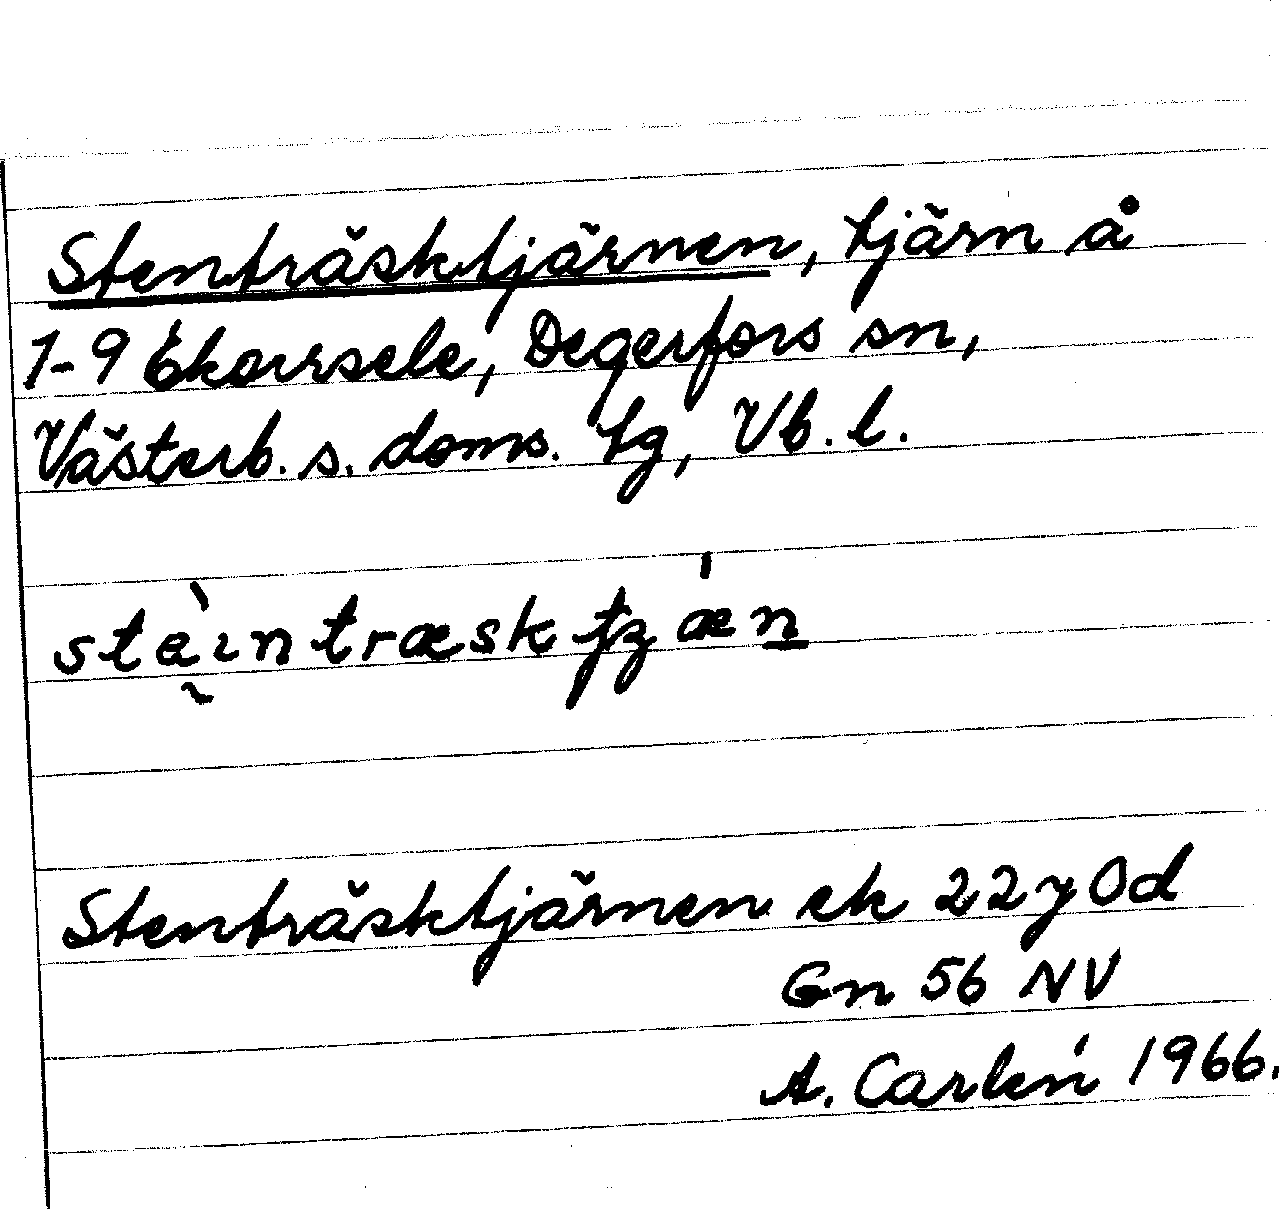 Stenträsktjärnen, tjärn å
1-9 Ekorrsele, Degerfors sn,
Västerb. s. doms. tg, Vb. l.
stæ̀ıntræskʈʒǽn
Stenträsktjärnen ek 22 y 0d
Gn 56 NV
A. Carlén 1966.